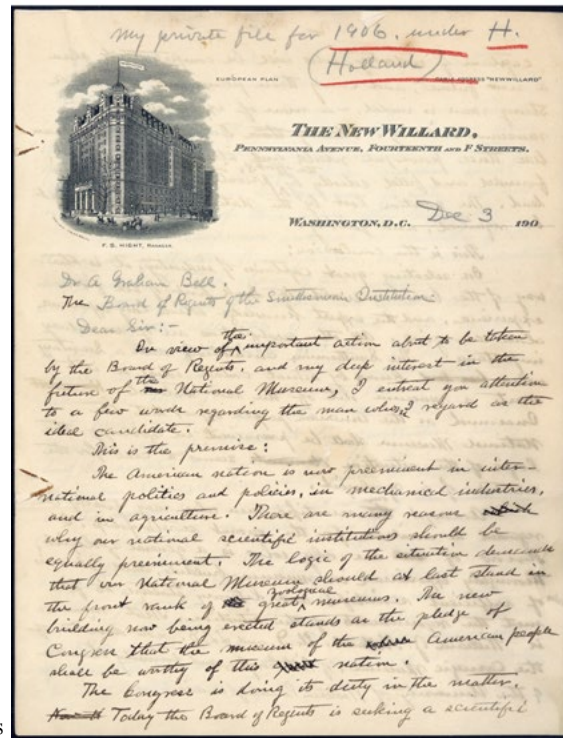 My private file for 1906. under H.
(Holland)
EUROPEAN PLAN
CABLE ADDRESS "NEWWILLARD"
THE NEW WILLARD,
PENNSYLVANIA AVENUE, FOURTEENTH AND F STREETS.
WASHINGTON, D.C. Dec 3 190
F. S. HIGHT, MANAGER
Dr. A Graham Bell.
The Board of Regents of the Smithsonian Institution.
Dear Sir:-
In view of the important action about to be taken
by the Board of Regents, and my deep interest in the
future of the National Museum, I entreat your attention
to a few words regarding the man whom I regard as the
ideal candidate.
This is the premise:
The American nation is now preeminent in inter-
national politics and policies, in mechanical industries,
and in agriculture. There are many reasons
why our national scientific institutions should be
equally preeminent. The logic of the situation demands
that our National Museum should at last stand in
the front rank of great zoological museums. The new
building now being erected stands as the pledge of
Congress that the museum of the American people
shall be worthy of this nation.
The Congress is doing its duty in the matter.
Today the Board of Regents is seeking a scientific
s